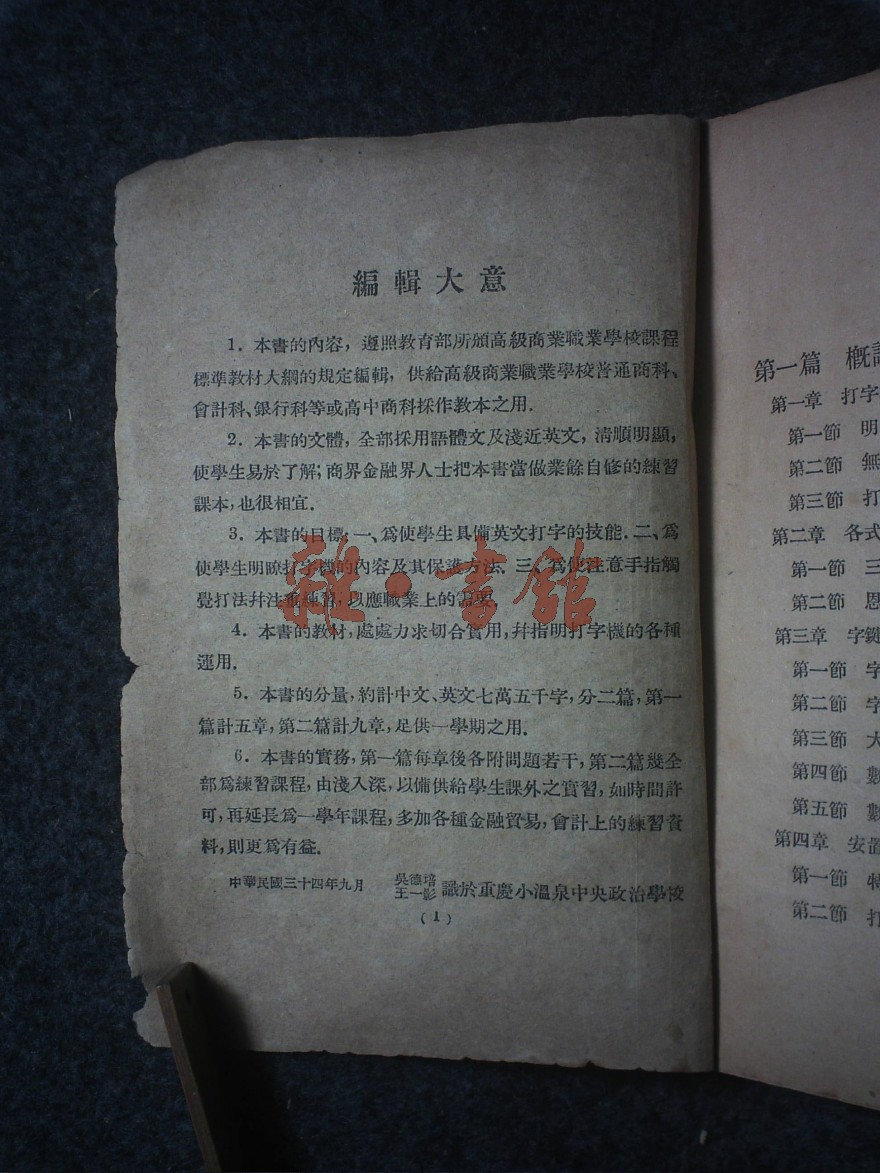 編輯大意
1. 本書的內容，遵照教育部所頒高級商業職業學校課程
標準教材大綱的規定編輯，供給高級商業職業學校普通商科、
會計科、銀行科等或高中商科採作教本之用.
2. 本書的文體，全部採用語體文及淺近英文，淸順明顯，
使學生易於了解；商界金融界人士把本書當做業餘自修的練習
課本，也很相宜.
3. 本書的目標：一、爲使學生具備英文打字的技能. 二、爲
使學生明瞭打字機的內容及其保護方法. 三、爲使注意手指觸
覺打法幷注重練習，以應職業上的需要.
4. 本書的教材，處處力求切合實用，幷指明打字機的各種
運用.
5. 本書的分量，約計中文、英文七萬五千字，分二篇，第一
篇計五章，第二篇計九章，足供一學期之用.
6. 本書的實務，第一篇每章後各附問題若干，第二篇幾全
部爲練習課程，由淺入深，以備供給學生課外之實習，如時間許
可，再延長爲一學年課程，多加各種金融貿易，會計上的練習資
料，則更爲有益.
中華民國三十四年九月 吳德培 王一影 識於重慶小溫泉中央政治學校
(1)
雜·書館
第一篇 概
第一章 打字
第一節 明
第二節 無
第三節 打
第二章 各式
第一節 三
第二節 恩
第三章 字鍵
第一節 字
第二節 字
第三節 大
第四節 數
第五節 數
第四章 安置
第一節 特
第二節 打